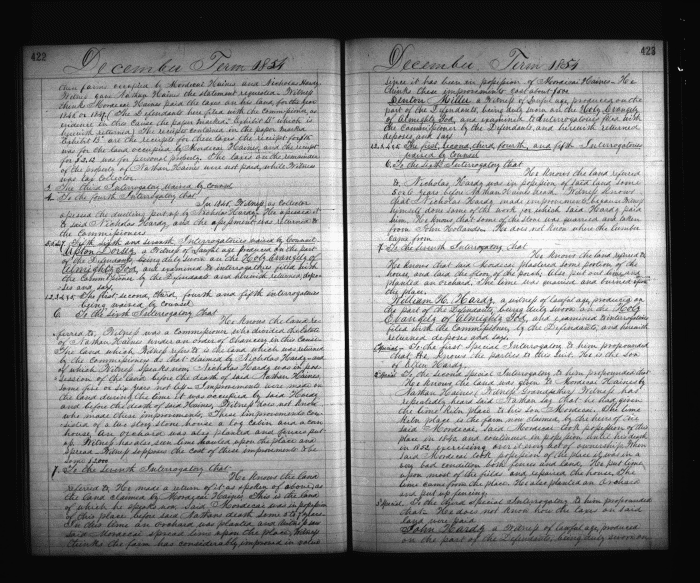 422
December Term 1854
their farms occupied by Mordecai Haines and Nicholas Hardy
Witness gave Nathan Haines the statement requested. Witness
thinks Mordecai Haines paid the taxes on his land for the years
1846 or 1847. The Defendants here filed with the Commissioner as
evidence in this cause the paper marked "Exhibit B" which is
herewith returned. The receipts contained in the paper marked
Exhibit B are the receipts for these taxes the receipt for
was for the land occupied by Mordecai Haines, and the receipt
for $2.12 was for personal property. The taxes on the remainder
of the property of Nathan Haines were not paid, while Witness
was tax collector.
3. The third Interrogatory waived by Counsel
4. To the fourth Interrogatory that
In 1846, Witness as Collector
apprised the dwelling put up by Nicholas Hardy. He apprised it
to said Nicholas Hardy and the assessment was returned to
the Commissioners.
5.6.&7. Fifth, sixth and seventh Interrogatories waived by Counsel
Upton Dorsey, a Witness of lawful age produced on the part
of the Defendants, being duly sworn on the Holy Evangely of
Almighty God, and examined to interrogatories filed with
the Commissioner by the Defendants and herewith returned, depos-
es and says.
1.2.3.4.&5. The first, second, third, fourth and fifth Interrogatories
being waived by Counsel
6. To the sixth Interrogatory that
He knows the land re-
ferred to, Witness was a Commissioner who divided the Estate
of Nathan Haines under an order of Chancery in this Cause.
The land which Witness refers to is the land which was returned
by the Commissioners as that claimed by Nicholas Hardy and
of which Witness speaks now. Nicholas Hardy was in pos-
session of the land before the death of said Nathan Haines,
some five or six years ago. Improvements were made on
the land during the time it was occupied by said Hardy
and before the death of said Haines, Witness does not know
who made these improvements. These improvements con-
sisted of a two story stone house a log cabin and a corn
house, an orchard was also planted and fences put
up. Witness has also seen lime hauled upon the place and
spread. Witness supposes the cost of these improvements to be
some $1000.
7. To the seventh Interrogatory that
He knows the land
referred to. He made a return of it as spoken of above, as
the land claimed by Mordecai Haines. This is the land
of which he speaks now. Said Mordecai was in possession
of this place before said Nathan's death some 6 or 7 years.
In this time an orchard was planted and
said Mordecai spread lime upon the place, Witness
thinks the farm has considerably improved in value
423
December Term 1854
since it has been in possession of Mordecai Haines. He
thinks these improvements cost about
Denton Miller a Witness of lawful age, produced on the
part of the Defendants, being duly sworn on the Holy Evangely
of Almighty God, and examined to Interrogatories filed with
the Commissioner by the Defendants, and herewith returned
deposes and says.
1.2.3.4.&5. The first, second, third, fourth, and fifth Interrogatories
waived by Counsel
6. To the sixth Interrogatory that
He knows the land referred
to, Nicholas Hardy was in possession of said land some
5 or 6 years before Nathan Haines' death, Witness knows
that Nicholas Hardy made improvements, because Witness
himself done some of the work for which said Hardy paid
him. He knows that some of the stone was quarried and taken
from John Holland's. He does not know where the lumber
came from
7. To the seventh Interrogatory that
He knows the land referred to
He knows that said Mordecai plastered some portion of the
house, and laid the floor of the porch; also put out lime and
planted an orchard. The lime was quarried and burned upon
the place.
William H. Hardy, a witness of lawful age produced on
the part of the Defendants, being duly sworn on the Holy
Evangely of Almighty God, and examined to interrogatories
filed with the Commissioner, by the Defendants, and herewith
returned deposes and says.
1 Special To the first Special Interrogatory to him propounded
that He knows the parties to this suit. He is the son
of Ellen Hardy
2 Special To the second Special Interrogatory to him propounded that
He knows the land was given to Mordecai Haines by
Nathan Haines, Witness' Grandfather, Witness has
repeatedly heard said Nathan say that he had given
the lime kiln place to his son Mordecai. The lime
kiln place is the farm now claimed by the heirs of
said Mordecai. Said Mordecai took possession of this
place in 1840, and continued in possession until his death
in 1852, exercising over it every act of ownership. When
said Mordecai took possession of the place it was in a
very bad condition both fences and land. He put lime
upon most of the fields, and repaired the house. The
lime came from the place. He also planted an Orchard
and put up fencing.
3 Special To the third special Interrogatory to him propounded
that He does not know how the taxes on said
land were paid
John Hardy a Witness of lawful age, produced
on the part of the Defendants, being duly sworn on